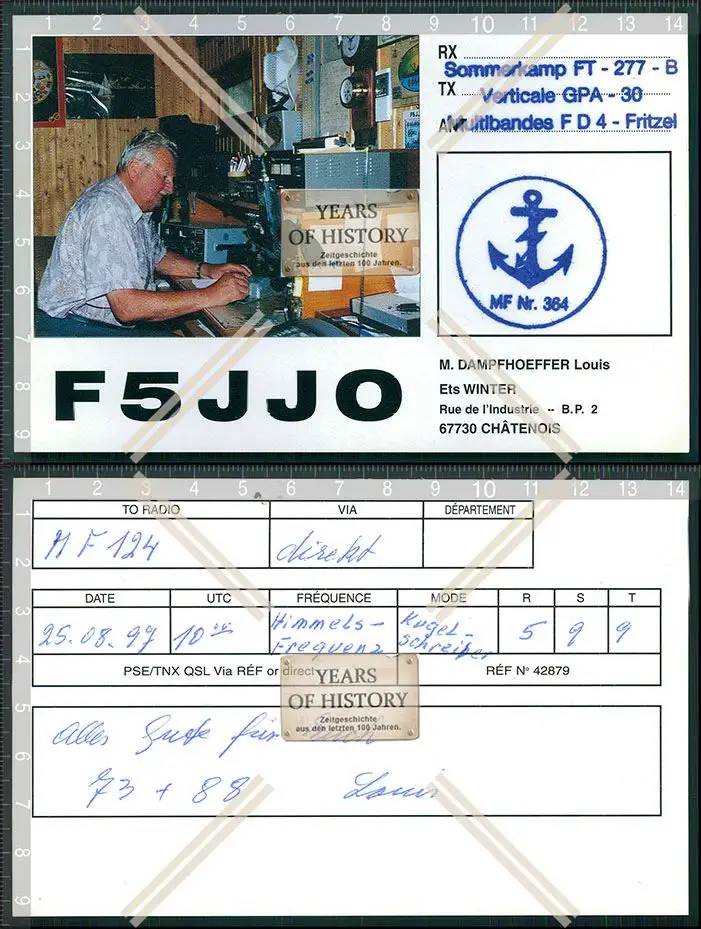 RX
Sommerkamp FT - 277 - B
TX
Verticale GPA - 30
Multibandes F D 4 - Fritzel
YEARS
OF HISTORY
Zeitgeschichte
aus den letzten 100 Jahren.
MF Nr. 364
F5JJO
M. DAMPFHOEFFER Louis
Ets WINTER
Rue de l'Industrie -- B.P. 2
67730 CHÂTENOIS
1 2 3 4 5 6 7 8 9 10 11 12 13 14
TO RADIO VIA DÉPARTEMENT
MF 124 direkt
DATE UTC FRÉQUENCE MODE R S T
25.08.97 10 Himmels-Frequenz Kugel-schreiber 5 9 9
PSE/TNX QSL Via RÉF or direct RÉF N° 42879
YEARS
OF HISTORY
Zeitgeschichte
aus den letzten 100 Jahren.
Alles Gute für
73 + 88 Louis